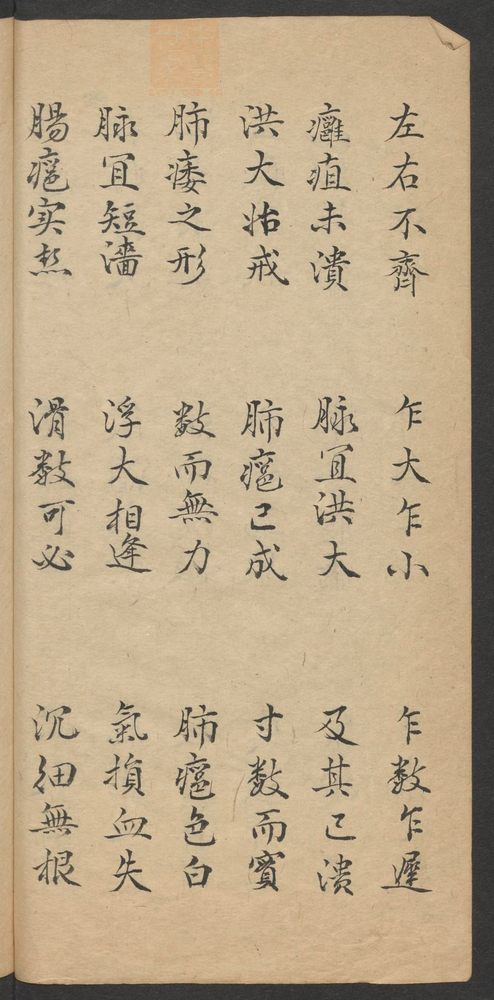 左右不齊 乍大乍小 乍數乍遲
癰疽未潰 脉冝洪大 及其已潰
洪大始戒 肺癰已成 寸数而實
肺痿之形 数而無力 肺癰色白
脉冝短濇 浮大相逢 氣損血失
腸癰实热 滑数可必 沉细無根